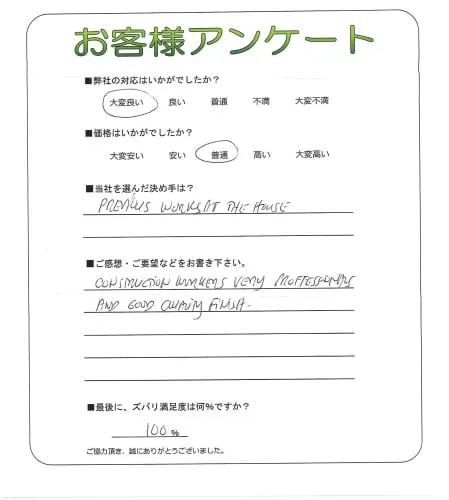 お客様アンケート
■弊社の対応はいかがでしたか？
大変良い 良い 普通 不満 大変不満
■価格はいかがでしたか？
大変安い 安い 普通 高い 大変高い
■当社を選んだ決め手は？
PREVIUS WORKS AT THE HOUSE
■ご感想・ご要望などをお書き下さい。
CONSTRUCTION WORKERS VERY
AND GOOD QUALITY FINISH.
■最後に、ズバリ満足度は何％ですか？
100 %
ご協力頂き、誠にありがとうございました。